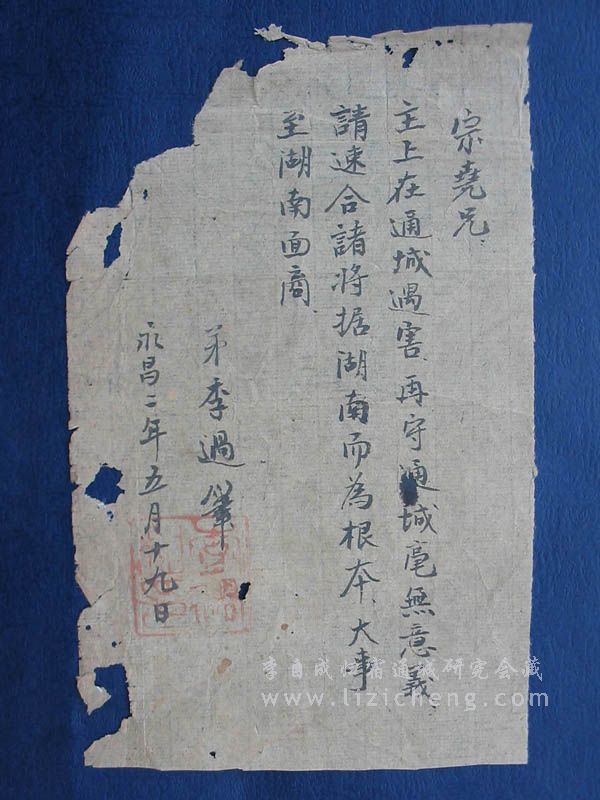 宗堯兄、
主上在通城遇害、再守通城毫無意義、
請速合諸将据湖南而為根本、大事
至湖南面商、
弟季過筆
永昌二年五月十九日
李自成归宿通城研究会藏
www.lizicheng.com